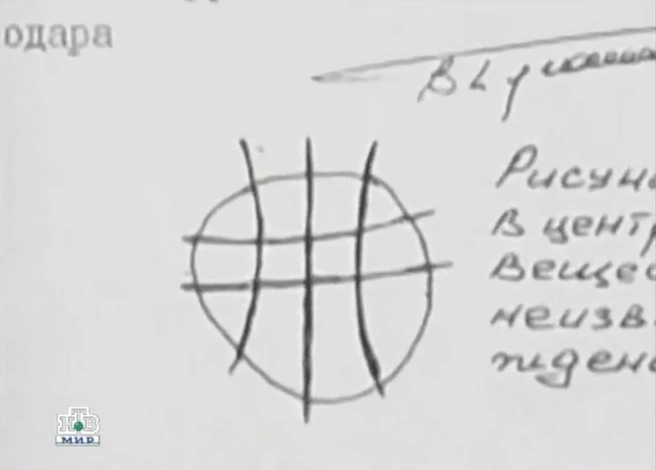 одара
Рисун
в цент
вещес
неизв
жден
НТВ
МИР